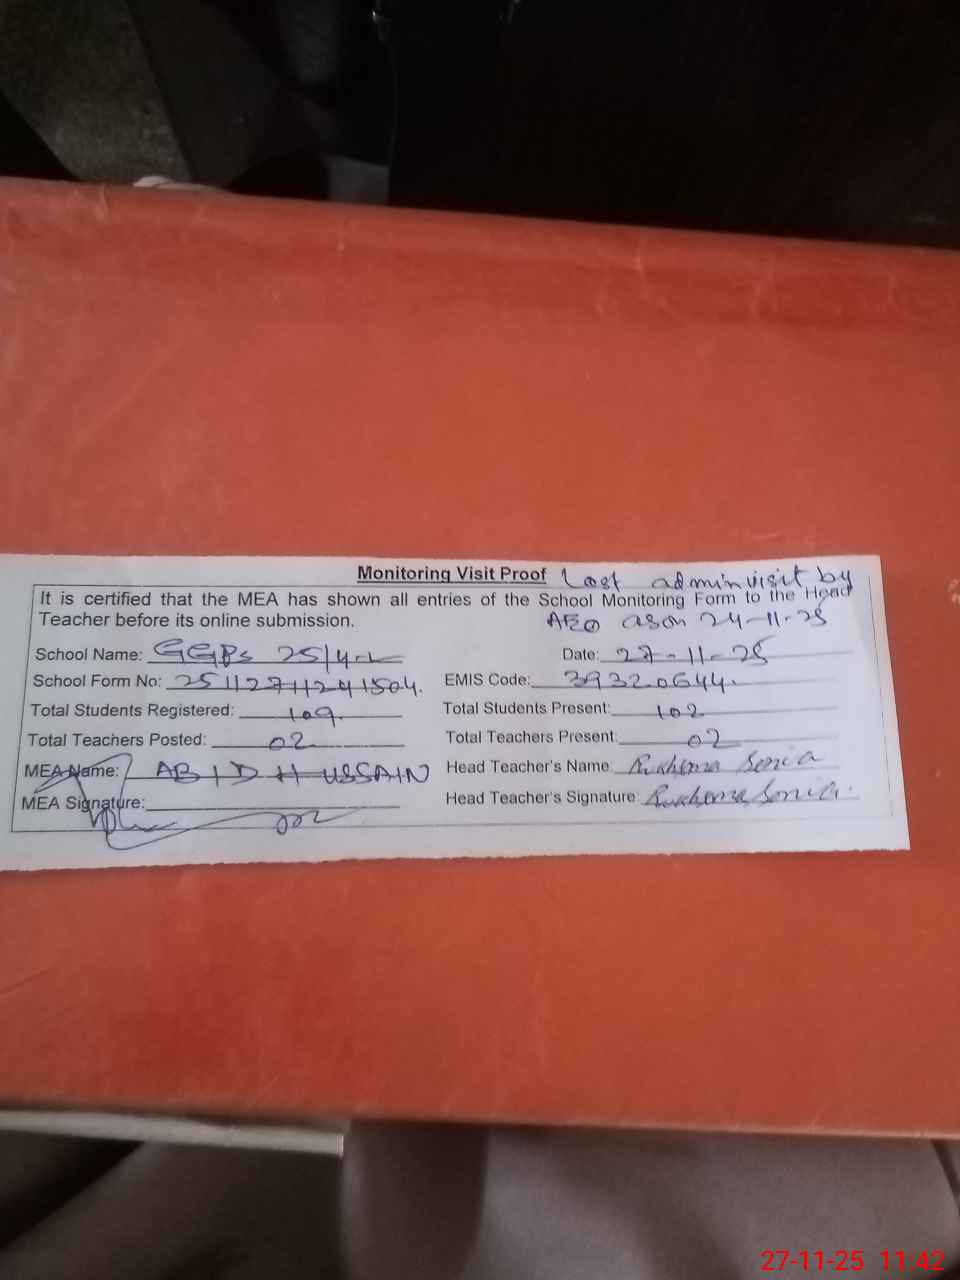 Monitoring Visit Proof Last admin visit by
It is certified that the MEA has shown all entries of the School Monitoring Form to the Head
Teacher before its online submission. AEO as on 24-11-25
School Name: GGPS 25/4-L Date: 27-11-25
School Form No: EMIS Code: 39320644
Total Students Registered: 109 Total Students Present: 102
Total Teachers Posted: 02 Total Teachers Present: 02
MEA Name: ABID HUSSAIN Head Teacher's Name: Sonia
MEA Signature: Head Teacher's Signature Sonia
27-11-25 11:42